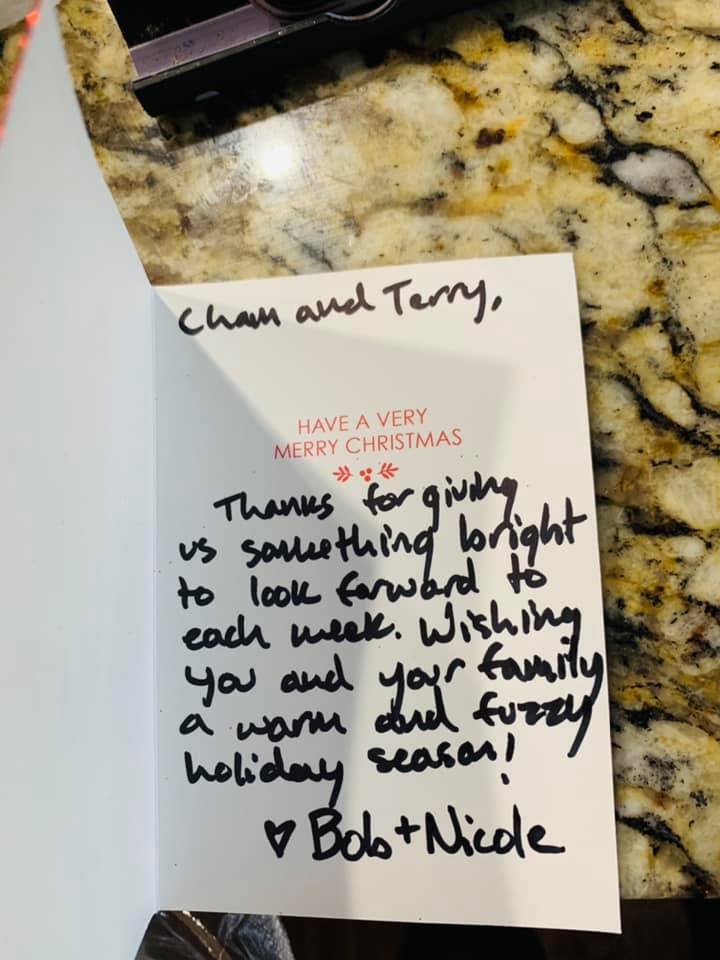 Cham and Terry,
HAVE A VERY
MERRY CHRISTMAS
Thanks for giving
us something bright
to look forward to
each week. Wishing
you and your family
a warm and fuzzy
holiday season!
♡ Bob + Nicole